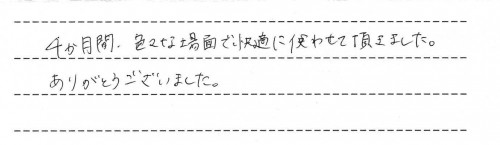 4か月間、色々な場面で快適に使わせて頂きました。
ありがとうございました。